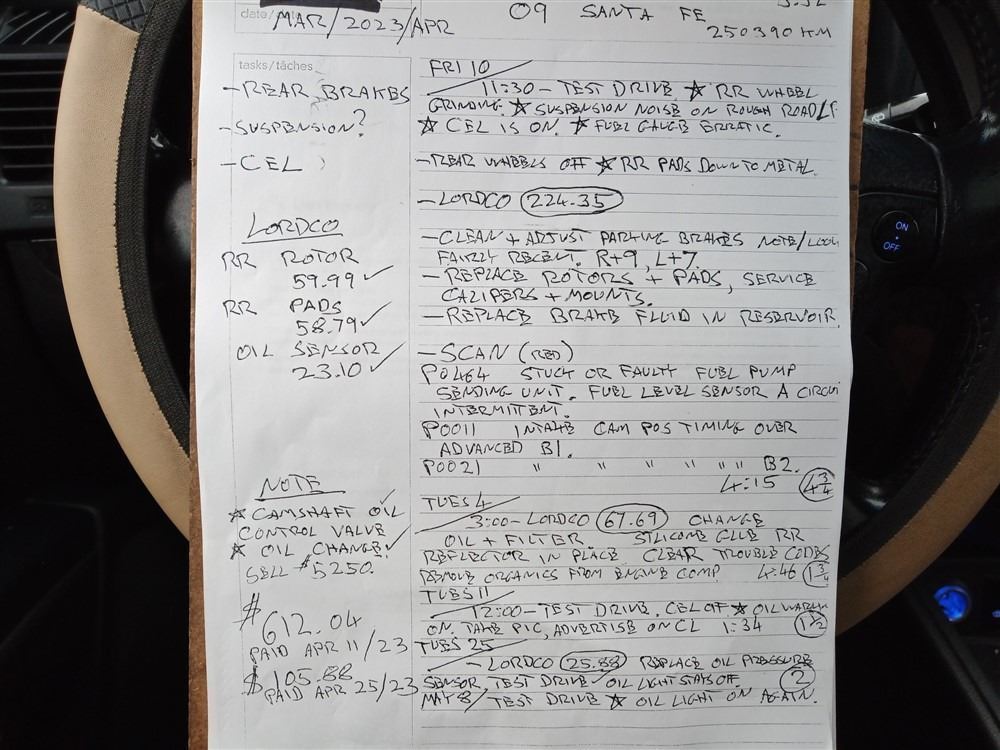 date/date
MAR/2023/APR
09 SANTA FE
250390 KM
tasks/tâches
- REAR BRAKES
- SUSPENSION?
- CEL
LORDCO
RR ROTOR
59.99 ✓
RR PADS
58.79 ✓
OIL SENSOR
23.10 ✓
NOTE
☆ CAMSHAFT OIL ✓
CONTROL VALVE
☆ OIL CHANGE ✓
SELL $5250.
$612.04
PAID APR 11/23
$105.88
PAID APR 25/23
FRI 10
11:30 - TEST DRIVE ☆ RR WHEEL
GRINDING. ☆ SUSPENSION NOISE ON ROUGH ROAD
☆ CEL IS ON. ☆ FUEL GAUGE ERRATIC.
- REAR WHEELS OFF ☆ RR PADS DOWN TO METAL.
- LORDCO 224.35
- CLEAN + ADJUST PARKING BRAKES NOTE/LOOK
FAIRLY RECENT. R+9, L+7.
- REPLACE ROTORS + PADS, SERVICE
CALIPERS + MOUNTS.
- REPLACE BRAKE FLUID IN RESERVOIR.
- SCAN (RED)
P0464 STUCK OR FAULTY FUEL PUMP
SENDING UNIT. FUEL LEVEL SENSOR A CIRCUI
INTERMITTENT.
P0011 INTAKE CAM POS TIMING OVER
ADVANCED B1.
P0021 " " " " " " B2.
4:15 4 3/4
TUES 4
3:00 - LORDCO 67.69 CHANGE
OIL + FILTER SILICONE GLUE RR
REFLECTOR IN PLACE CLEAR TROUBLE CODES
REMOVE ORGANICS FROM ENGINE COMP. 4:46 1 3/4
TUES 11
12:00 - TEST DRIVE. CEL OFF ☆ OIL WARN
ON. TAKE PIC, ADVERTISE ON CL 1:34 1 1/2
TUES 25
- LORDCO 25.88 REPLACE OIL PRESSURE
SENSOR, TEST DRIVE ✓ OIL LIGHT STAYS OFF. 2
MAY 8/ TEST DRIVE ☆ OIL LIGHT ON AGAIN.
ON
OFF